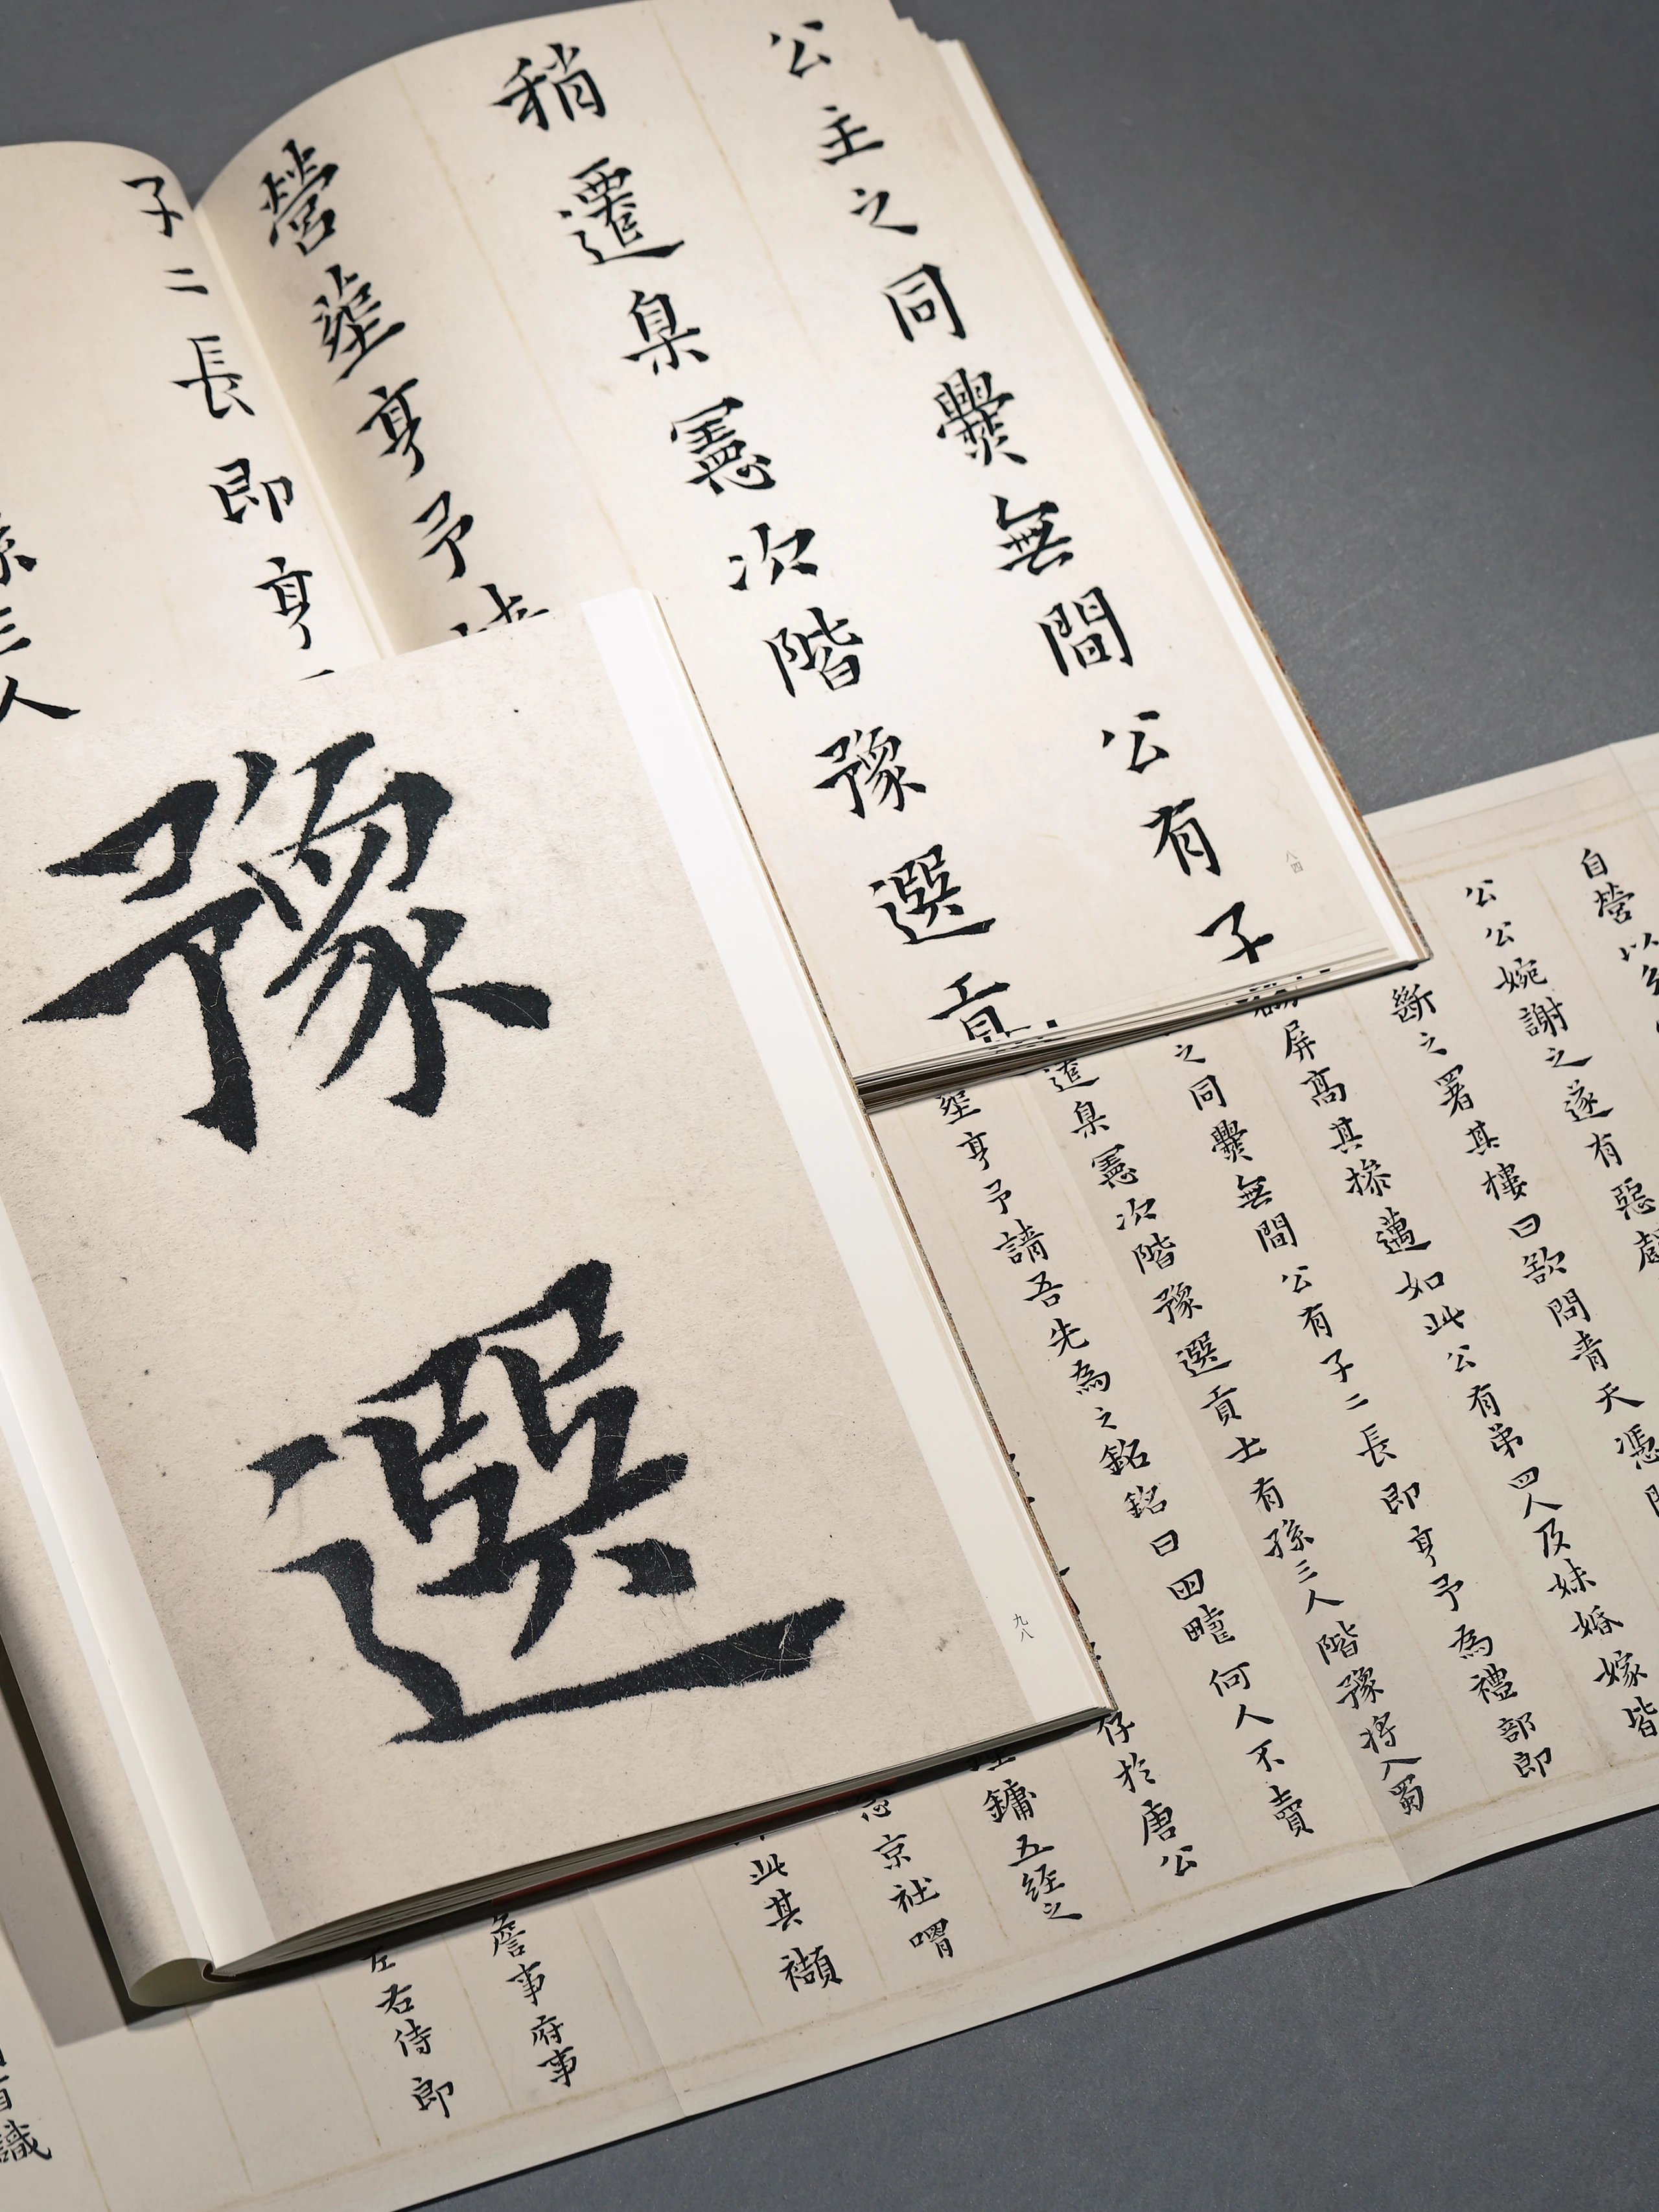 公主之同爨無間公有子
稍遷臬憲次階豫選貢
營葬亨予
八四
子二長即亨
三人
豫選
九八
自營以
公公婉謝之遂有惡
斷之署其樓曰欲問青天憑
屏高其摻邁如此公有弟四人及妹婚嫁皆
之同爨無間公有子二長即亨予為禮部郎
遷臬憲次階豫選貢士有孫三人階豫將入蜀
亨予請吾先為之銘銘曰四疇何人不賣
於唐公
鏞五經之
京社喟
此其襭
詹事府事
左右侍郎
識